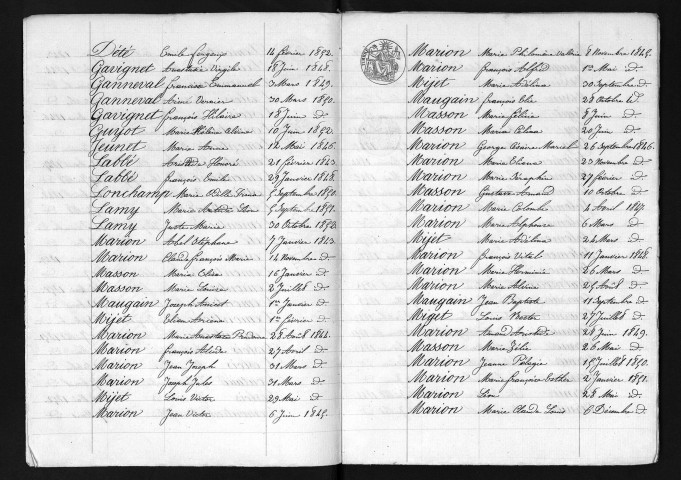 Dété Emile 14 février 1852.
Gavignet Anastasie Virgile 18 Juin 1848.
Ganneval Francise Emmanuel 3 Mars 1849.
Ganneval Aimé Vernier 30 Mars 1850.
Gavignet François Hilaire 18 Juin d°
Guyot Marie Hélène 10 Juin 1852.
Jeunet Marie Annie 12 Mai 1846.
Labbé Honoré 21 février 1843.
Labbé François Emile 29 Janvier 1848.
Lonchamp Marie 7 Septembre 1850.
Lamy Marie Léon 5 Septembre 1851.
Lamy Juste Marie 30 Octobre 1852.
Marion Abel Stéphane 7 Janvier 1843.
Marion Claude François Marie 14 Novembre d°
Masson Maria 16 Janvier d°
Masson Marie Louise 2 Juillet d°
Maugain Joseph Anicet 1er Janvier d°
Mijet 1er février d°
Marion Marie 28 Août 1844.
Marion François 27 Avril d°
Marion Jean Joseph 31 Mars d°
Marion Joseph Jules 31 Mars d°
Mijet Louis Victor 29 Mai d°
Marion Jean Victor 6 Juin 1845.
Marion Marie Philomène Valérie 8 Novembre 1845.
Marion François Alfred 1er Mai d°
Mijet Marie Adelina 30 Septembre d°
Maugain François Elie 28 Octobre d°
Masson Marie 8 Juin d°
Masson Marie 20 Juin d°
Marion George Marcel 26 Septembre 1846.
Marion Marie 23 Novembre d°
Marion Marie Séraphin 27 février d°
Masson Gustave Armand 10 Octobre d°
Marion Marie Colombe 4 Avril 1847.
Marion Marie Alphonse 6 Mars d°
Mijet Marie Adelina 24 Mars d°
Marion François Vital 11 Janvier 1848.
Marion Marie Herminie 26 Mars d°
Marion Marie 25 Août d°
Maugain Jean Baptiste 11 Septembre d°
Miget Louis 27 Juillet d°
Marion Amand 28 Juin 1849.
Masson Marie Zélie 26 Mai d°
Marion Jeanne Pélagie 15 Juillet 1850.
Marion Marie Françoise Esther 2 Janvier 1851.
Marion Léon 28 Mai d°
Marion Marie Claude Louis 6 Décembre d°